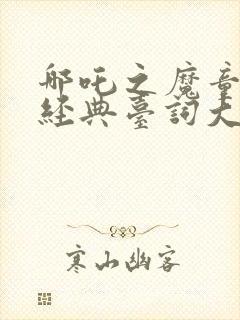 哪吒之魔童
經典臺詞大
寒山幽客